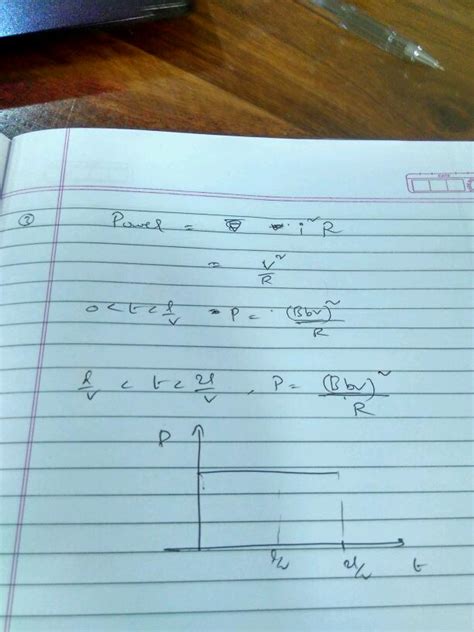 ② Power = i² R
= V²/R
0 < t < l/v → P = (Bbv)²/R
l/v < t < 2l/v , P = (Bbv)²/R
P
l/v 2l/v t